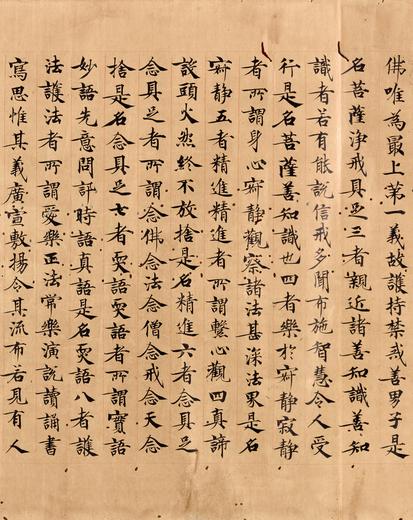 佛唯為最上第一義故護持禁戒善男子是
名菩薩淨戒具足三者親近諸善知識善知
識者若有能說信戒多聞布施智慧令人受
行是名菩薩善知識也四者樂於寂静寂静
者所謂身心寂静觀察諸法甚深法界是名
寂静五者精進精進者所謂繫心觀四真諦
設頭火然終不放捨是名精進六者念具足
念具足者所謂念佛念法念僧念戒念天念
捨是名念具足七者耎語耎語者所謂實語
妙語先意問訊時語真語是名耎語八者護
法護法者所謂愛樂正法常樂演說讀誦書
寫思惟其義廣宣敷揚令其流布若見有人